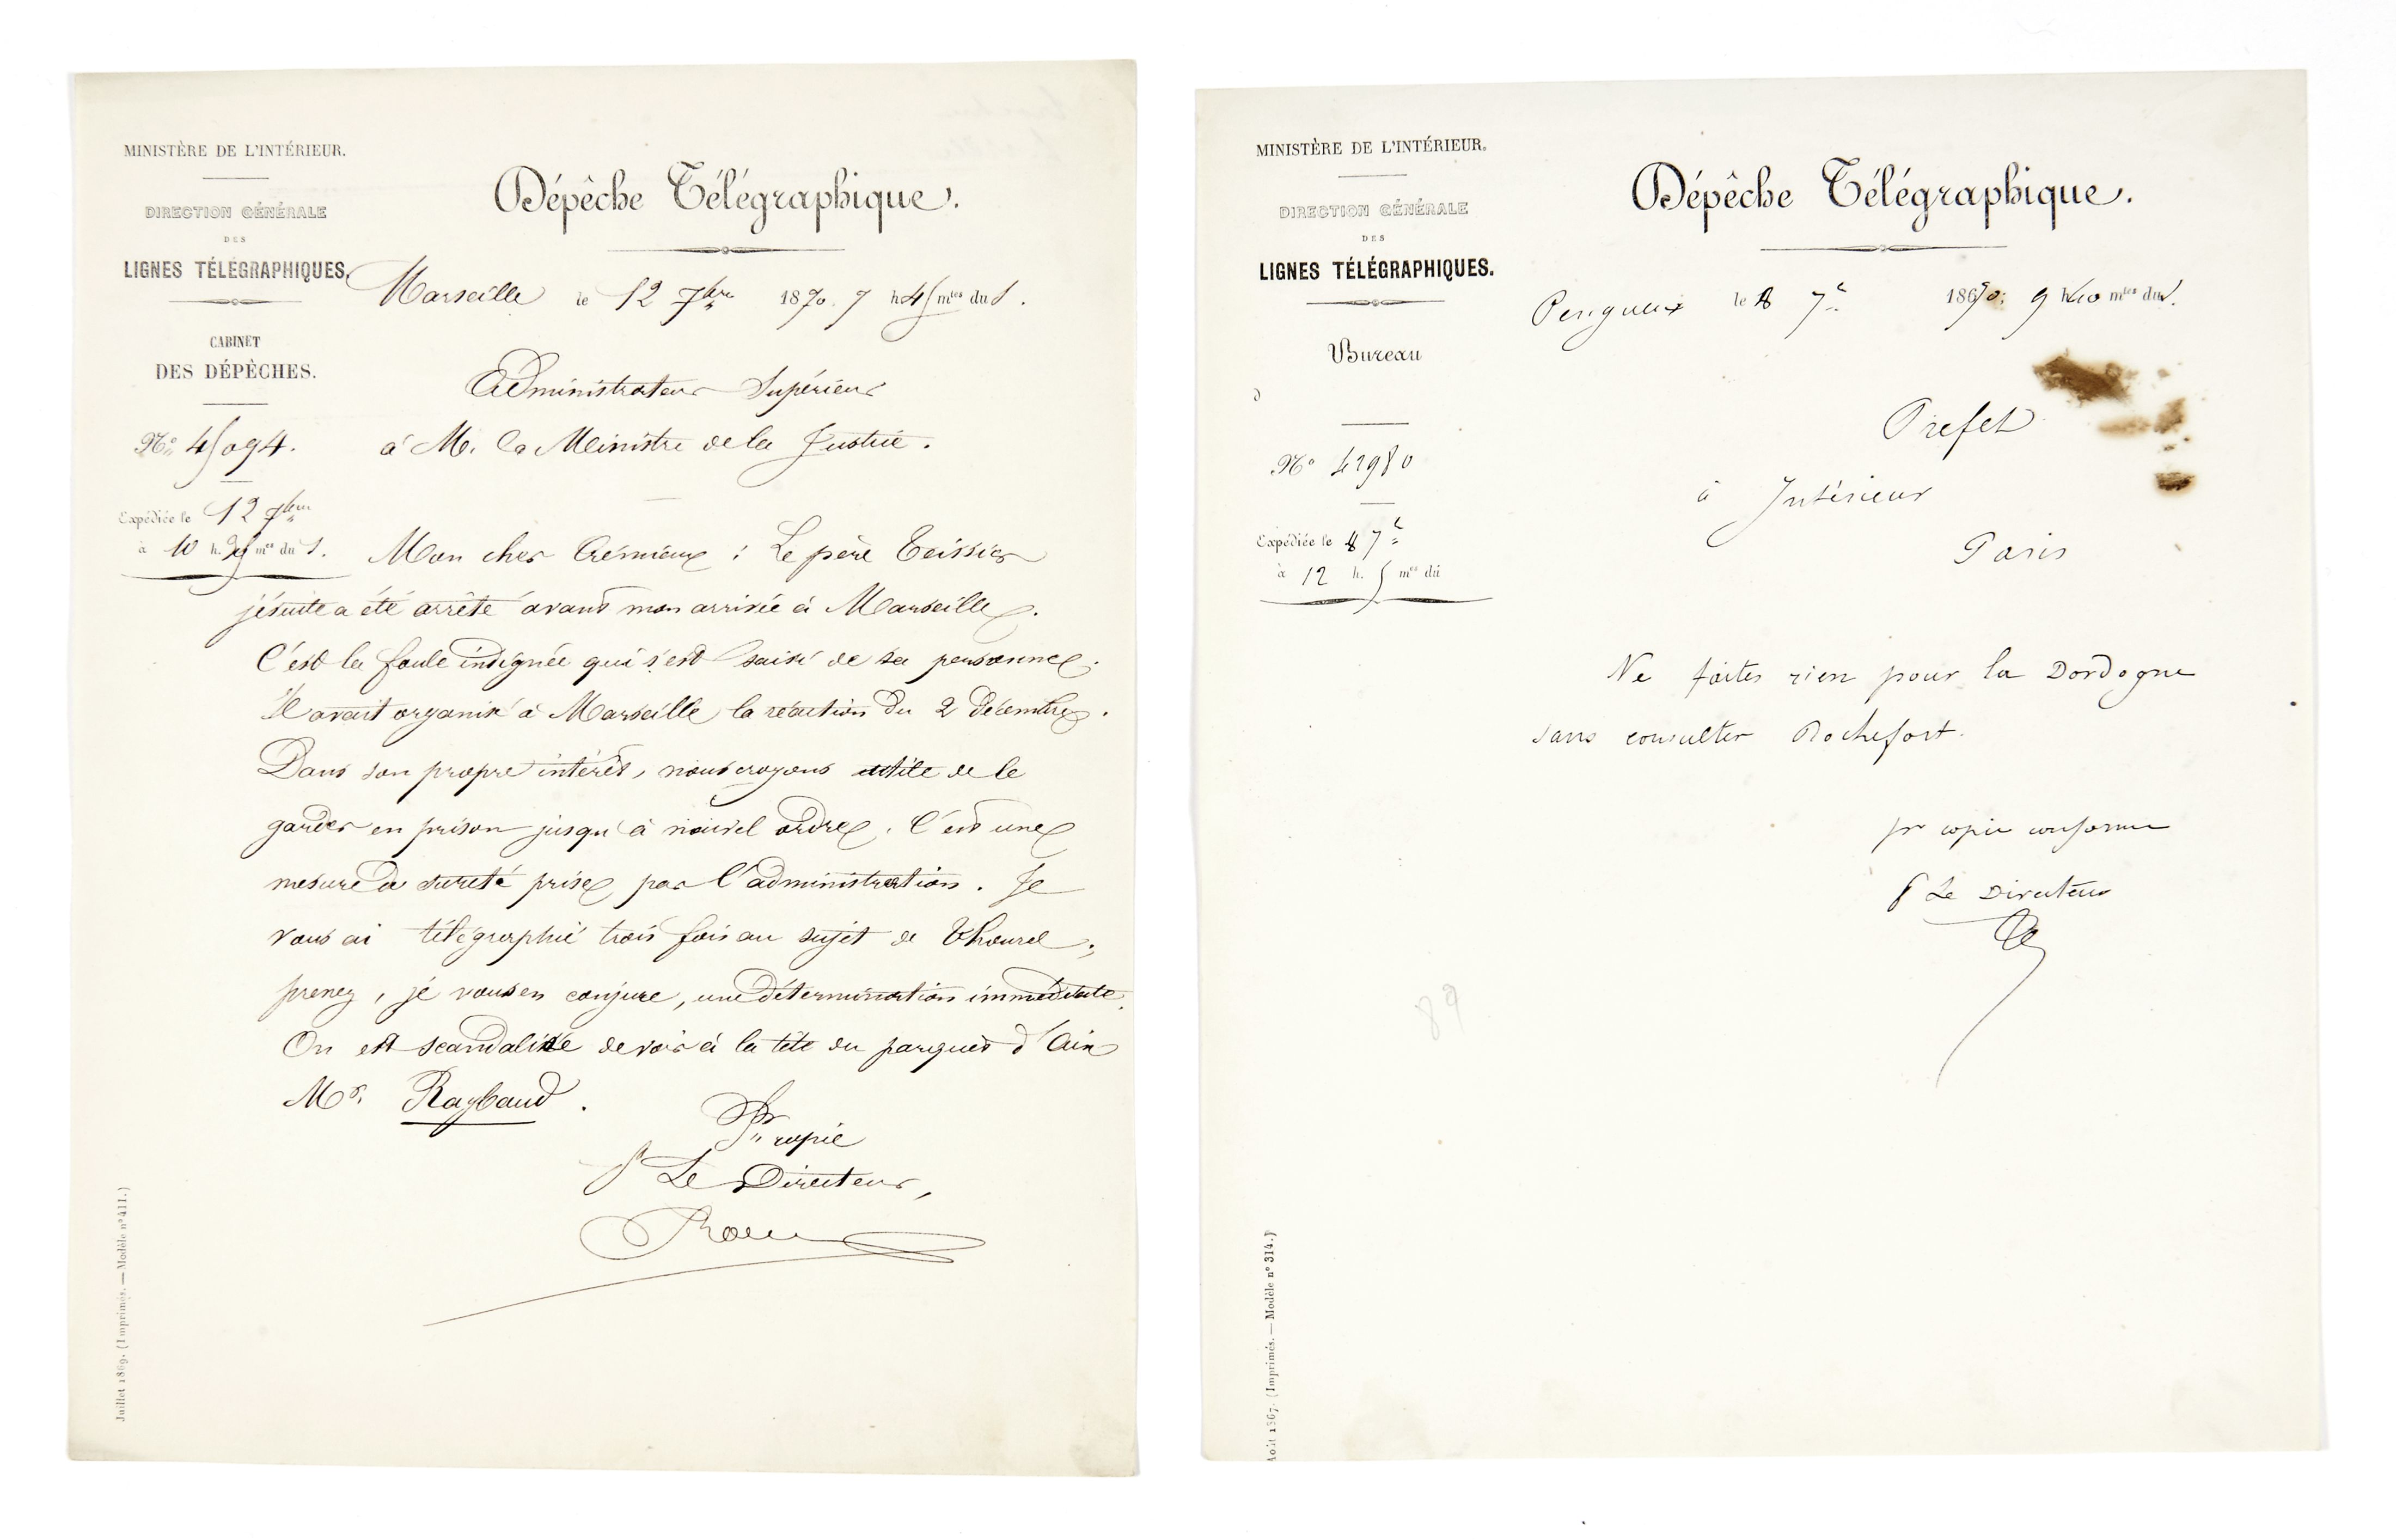 MINISTÈRE DE L'INTÉRIEUR.
DIRECTION GÉNÉRALE
DES
LIGNES TÉLÉGRAPHIQUES.
CABINET
DES DÉPÊCHES.
N° 45094.
Expédiée le 12 7bre
à 10 h. 25 mes du S.
Dépêche Télégraphique.
Marseille le 12 7bre 1870. 7 h 45 mtes du S.
Administrateur Supérieur
à M. le Ministre de la Justice.
Mon cher Crémieux : Le père Teissier
jésuite a été arrêté avant mon arrivée à Marseille.
C'est la foule indignée qui s'est saisi de sa personne.
Il avait organisé à Marseille la réaction du 2 Décembre.
Dans son propre intérêt, nous croyons utile de le
garder en prison jusqu'à nouvel ordre. C'est une
mesure de sureté prise par l'administration. Je
vous ai télégraphié trois fois au sujet de Thourel;
prenez, je vous en conjure, une détermination immédiate.
On est scandalisé de voir à la tête du parquet d'Aix
Mr. Raybaud.
Pr copie
P Le Directeur,
Juillet 1869. (Imprimés. — Modèle n° 411.)
MINISTÈRE DE L'INTÉRIEUR.
DIRECTION GÉNÉRALE
DES
LIGNES TÉLÉGRAPHIQUES.
Bureau
d
N° 42980
Expédiée le 8 7e
à 12 h. 5 mes du
Dépêche Télégraphique.
Perigueux le 8 7e 1870; 9 h 40 mtes du S.
Prefet
à Intérieur
Paris
Ne faites rien pour la Dordogne
sans consulter Rochefort.
pr copie conforme
P Le Directeur
89
Août 1867. (Imprimés. — Modèle n° 314.)